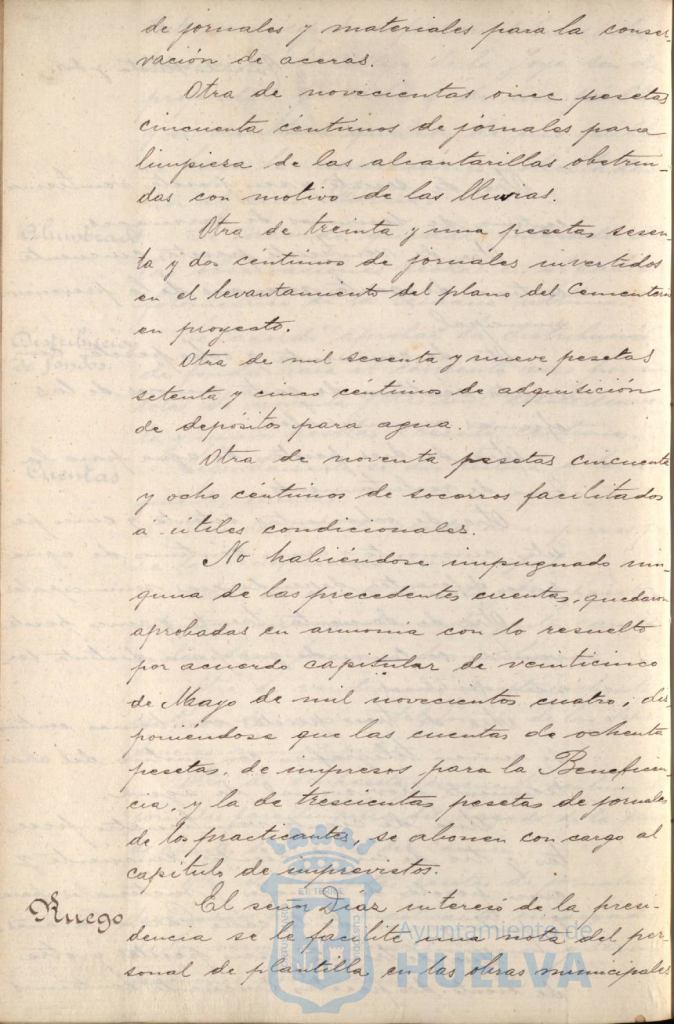 de jornales y materiales para la conser-
vación de aceras.
Otra de novecientas once pesetas
cincuenta céntimos de jornales para
limpieza de las alcantarillas obstrui-
das con motivo de las lluvias.
Otra de treinta y una pesetas sesen-
ta y dos céntimos de jornales invertidos
en el levantamiento del plano del Cementerio
en proyecto.
Otra de mil sesenta y nueve pesetas
setenta y cinco céntimos de adquisición
de depósitos para agua.
Otra de noventa pesetas cincuenta
y ocho céntimos de socorros facilitados
a útiles condicionales.
No habiéndose impugnado nin-
guna de las precedentes cuentas, quedaron
aprobadas en armonía con lo resuelto
por acuerdo capitular de veinticinco
de Mayo de mil novecientos cuatro; dis-
poniéndose que las cuentas de ochenta
pesetas, de impresos para la Beneficen-
cia, y la de trescientas pesetas de jornales
de los practicantes, se abonen con cargo al
capítulo de imprevistos.
Ruego
El señor Díaz interesó de la presi-
dencia se le facilite una nota del per-
sonal de plantilla en las obras municipales
Ayuntamiento de
HUELVA